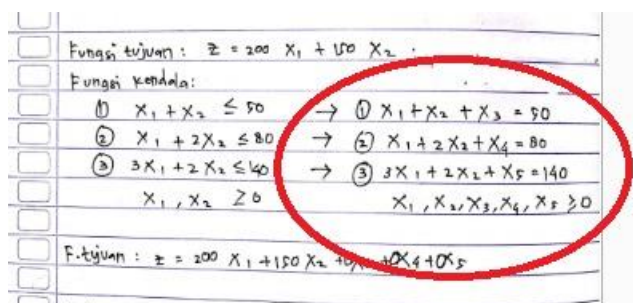 Fungsi tujuan : Z = 200 X₁ + 150 X₂ .
Fungsi kendala:
① X₁ + X₂ ≤ 50 → ① X₁ + X₂ + X₃ = 50
② X₁ + 2X₂ ≤ 80 → ② X₁ + 2X₂ + X₄ = 80
③ 3X₁ + 2X₂ ≤ 140 → ③ 3X₁ + 2X₂ + X₅ = 140
X₁ , X₂ ≥ 0 X₁ , X₂, X₃, X₄, X₅ ≥ 0
F. tujuan : Z = 200 X₁ + 150 X₂ + + 0X₄ + 0X₅